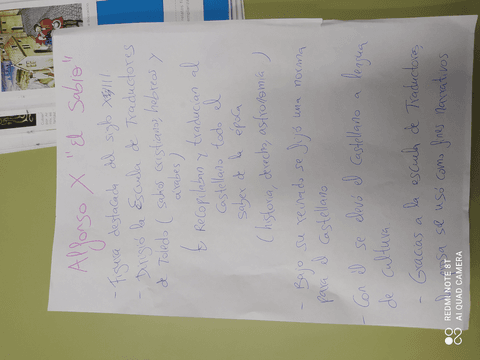 Alfonso X "El Sabio"
- Figura destacada del siglo XIII
- Dirigió la Escuela de Traductores
de Toledo ( sabios cristianos, hebreos y
árabes)
↳ Recopilaban y traducían al
Castellano todo el
saber de la época
( historia, derecho, astronomía )
- Bajo su reinado se fijó una norma
para el Castellano
- Con él se elevó el Castellano a lengua
de cultura
- Gracias a la escuela de Traductores,
la prosa se usó como fines narrativos
REDMI NOTE 8T
AI QUAD CAMERA